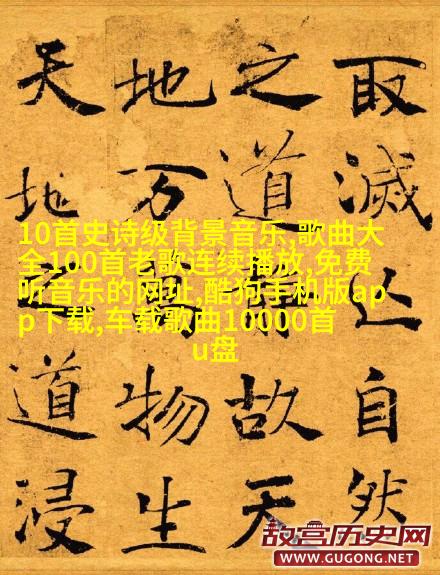 取滅亾自然
之道故天
地万物生
天地道浸
10首史诗级背景音乐,歌曲大
全100首老歌连续播放,免费
听音乐的网址,酷狗手机版ap
p下载,车载歌曲10000首
u盘
故宫历史网
WWW.GUGONG.NET